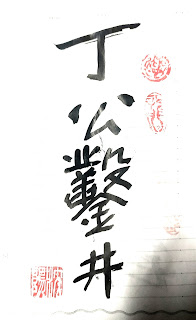 丁公鑿井